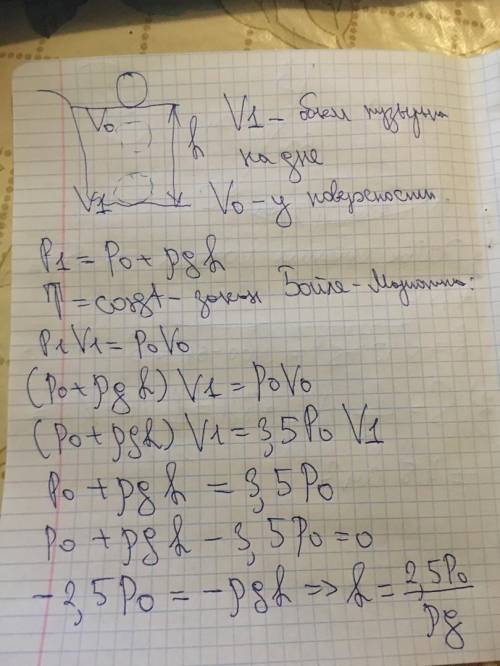 V0
V1
h
V1 – объем пузырька
на дне
V0 – у поверхности.
P1 = P0 + ρgh
T = const – закон Бойля-Мариотта:
P1V1 = P0V0
(P0 + ρgh) V1 = P0V0
(P0 + ρgh) V1 = 3,5P0 V1
P0 + ρgh = 3,5P0
P0 + ρgh – 3,5P0 = 0
–2,5P0 = –ρgh => h = 2,5P0 / ρg